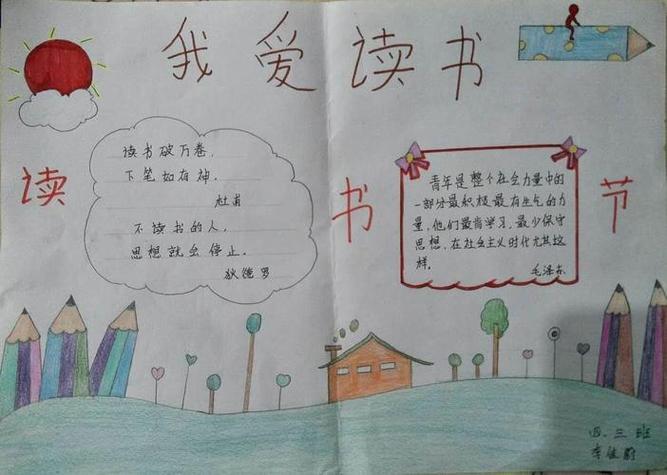 我爱读书
读书节
读书破万卷,
下笔如有神.
杜甫
不读书的人,
思想就会停止.
狄德罗
青年是整个社会力量中的
一部分最积极最有生气的力
量,他们最肯学习,最少保守
思想,在社会主义时代尤其这
样。
毛泽东
四.三班
李佳蔚